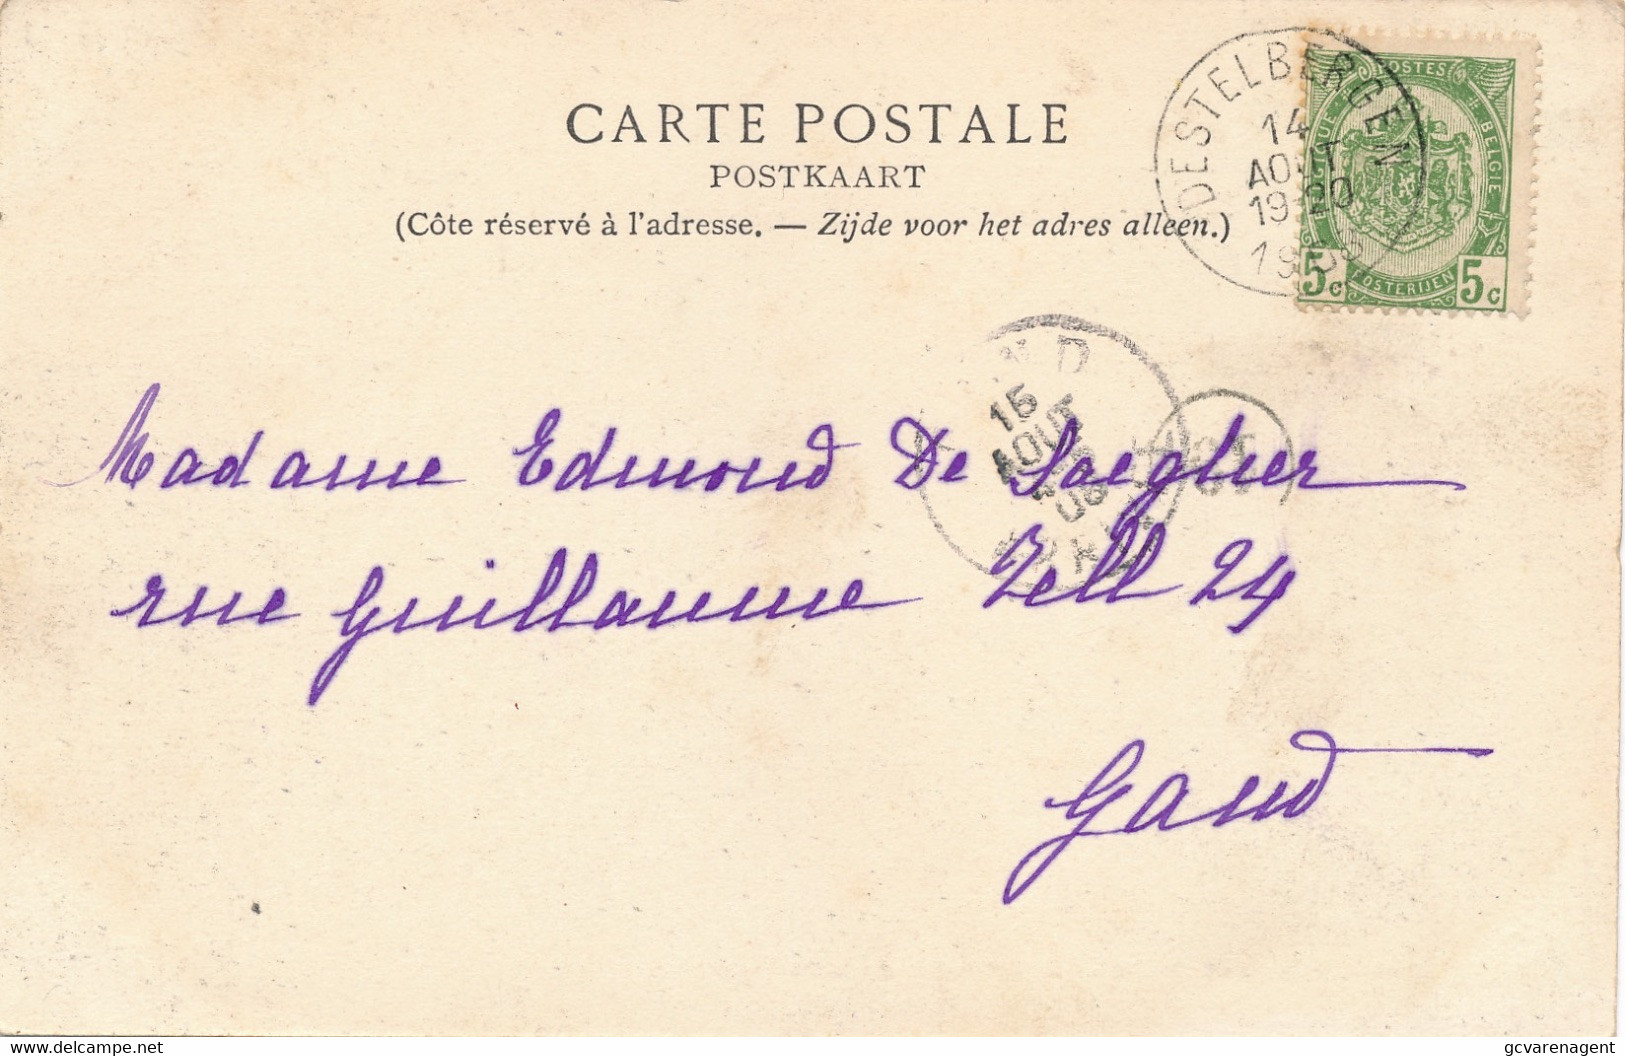 CARTE POSTALE
POSTKAART
(Côte réservé à l'adresse. — Zijde voor het adres alleen.)
DESTELBERGEN
14
AOUT
19-20
POSTES
BELGIQUE
BELGIE
POSTERIJEN
5c
5c
15
AOUT
Madame Edmond De Saegher
rue Guillaume Tell 24
Gand
delcampe.net
gcvarenagent